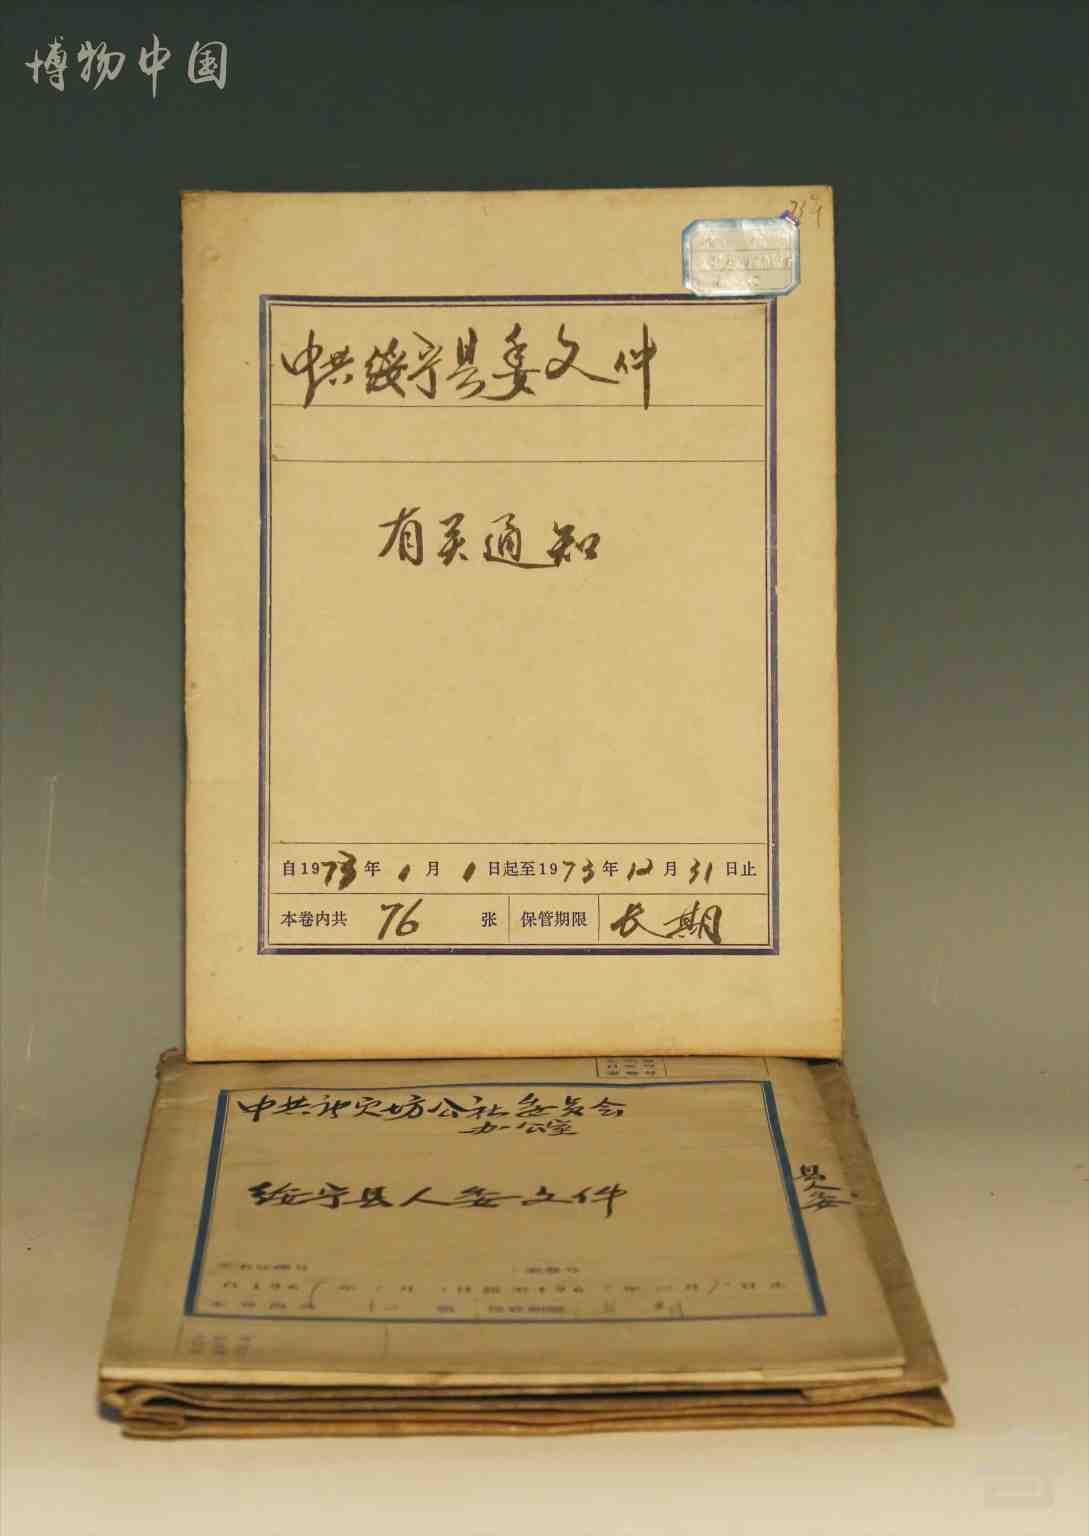 博物中国
中共绥宁县委文件
有关通知
自1973年1月1日起至1973年12月31日止
本卷内共 76 张 保管期限 长期
公社委员会
办公室
绥宁县人委文件
县人委